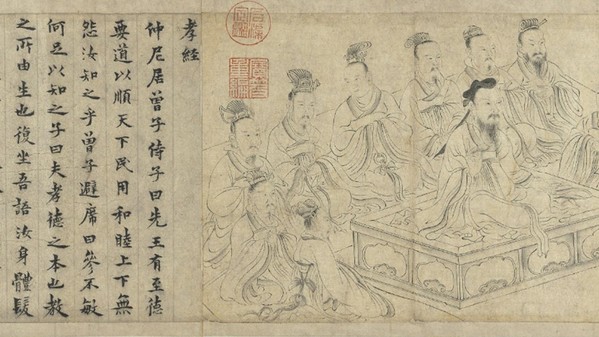 孝經
仲尼居曾子侍子曰先王有至德
要道以順天下民用和睦上下無
怨汝知之乎曾子避席曰參不敏
何足以知之子曰夫孝德之本也教
之所由生也復坐吾語汝身體髮